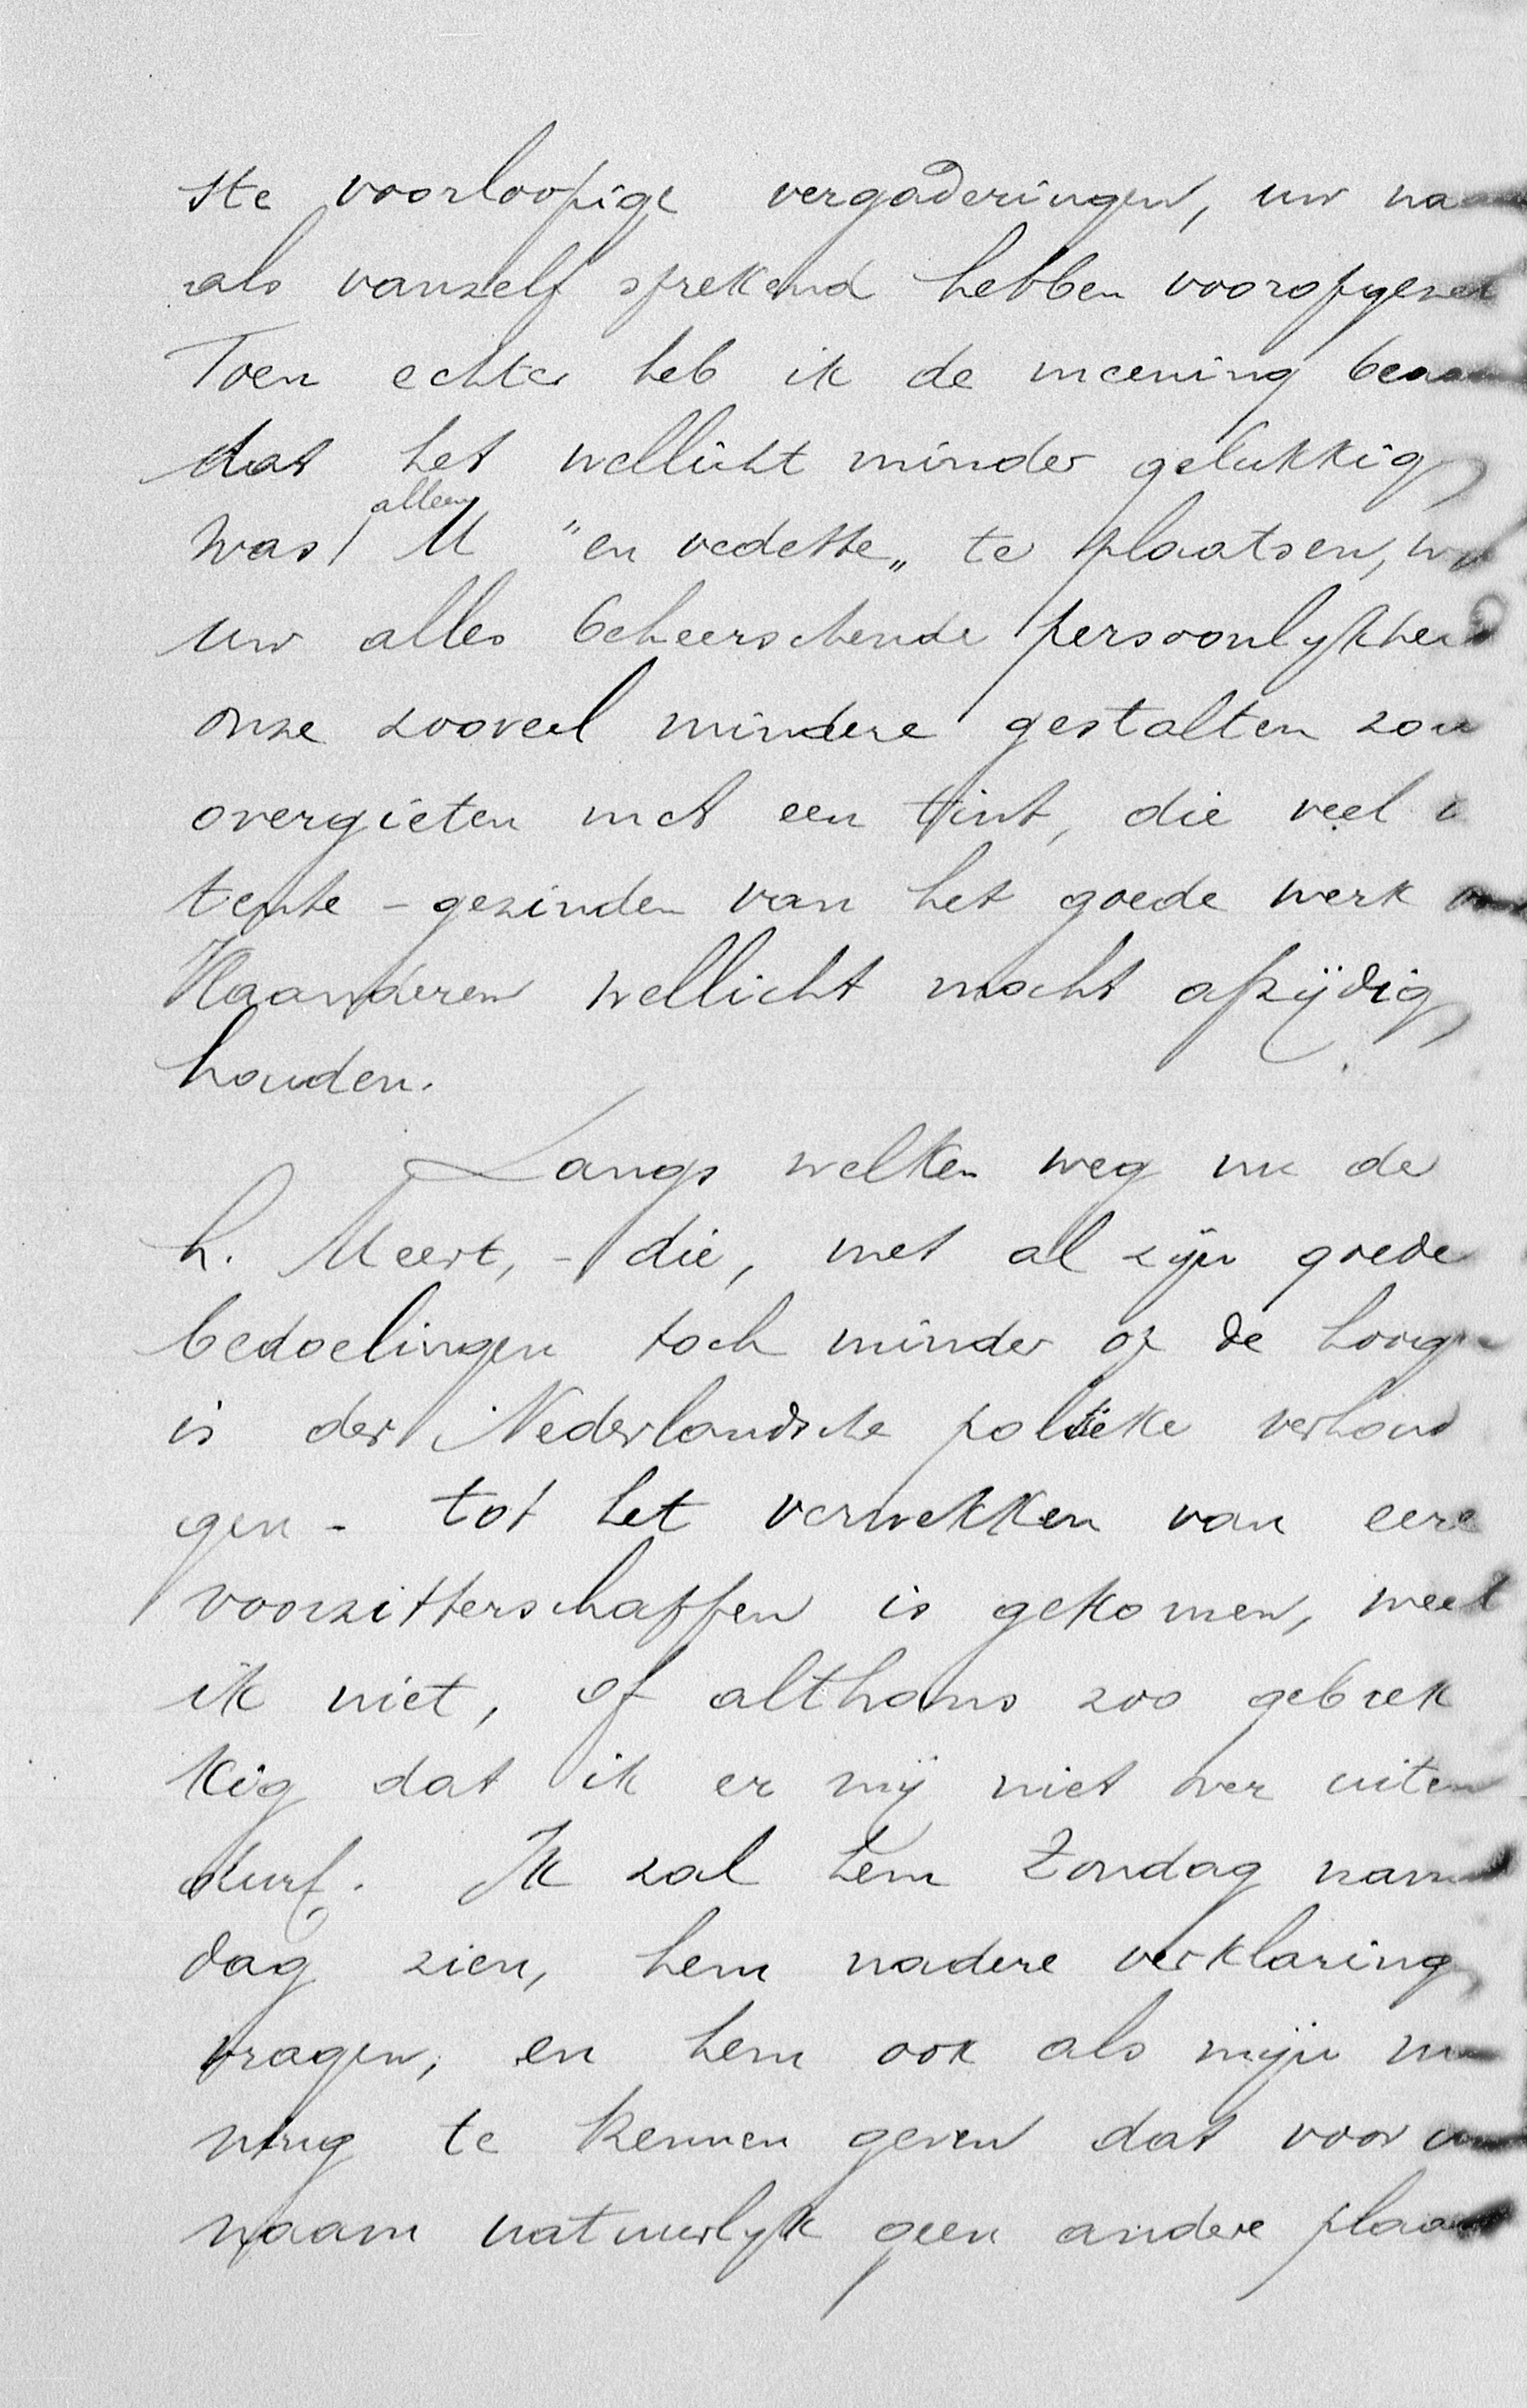 ste voorloopige vergaderingen, uw
als vanzelf sprekend hebben
Toen echter heb ik de meening
dat het wellicht minder gelukkig
was alleen U "en vedette„ te plaatsen,
uw alles beheerschende persoonlykheid
onze zooveel mindere gestalten zou
overgieten met een tint, die veel
tente - gezinden van het goede werk
Vlaanderen wellicht mocht afzijdig
houden.
Langs welken weg nu de
h. Meert, - die, met al zijn goede
bedoelingen toch minder op de hoogte
is der Nederlandsche politieke verhoud
gen - tot het verwekken van eere
voorzitterschappen is gekomen, weet
ik niet, of althans zoo gebrek
kig dat ik er mij niet over uiten
durf. Ik zal hem Zondag
dag zien, hem nadere verklaring
vragen, en hem ook als mijn
ning te kennen geven dat voor
naam natuurlyk geen andere plaats